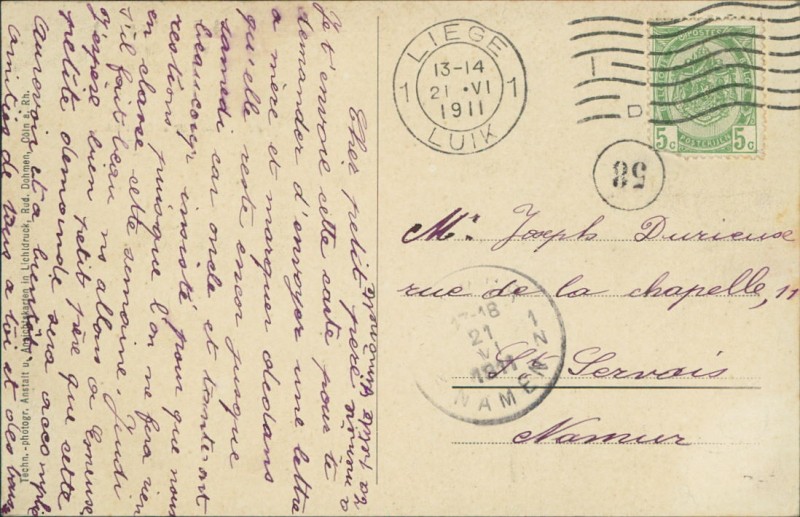 Cher petit père
Je t'envoie cette carte pour te
demander d'envoyer une lettre
a mère et marquer dedans
qu'elle reste encor jusque
samedi car oncle et tante ont
beaucoup insisté pour que nous
restions puisque l'on ne fera rien
en classe cette semaine. Jeudi
s'il fait beau ns allons a
J'espère bien petit père que cette
petite demande sera accomplie
Aurevoir et a bientôt.
Amitiés de tous a toi et des
Techn.-photogr. Anstalt u. Ansichtskarten in Lichtdruck, Rud. Dohmen, Cöln a. Rh.
LIEGE
1 13-14 1
21 VI
1911
LUIK
5c 5c
58
Mr. Joseph Durieuse
rue de la chapelle, 11
St Servais
Namur
17-18
21
VI
1911
1
NAMEN